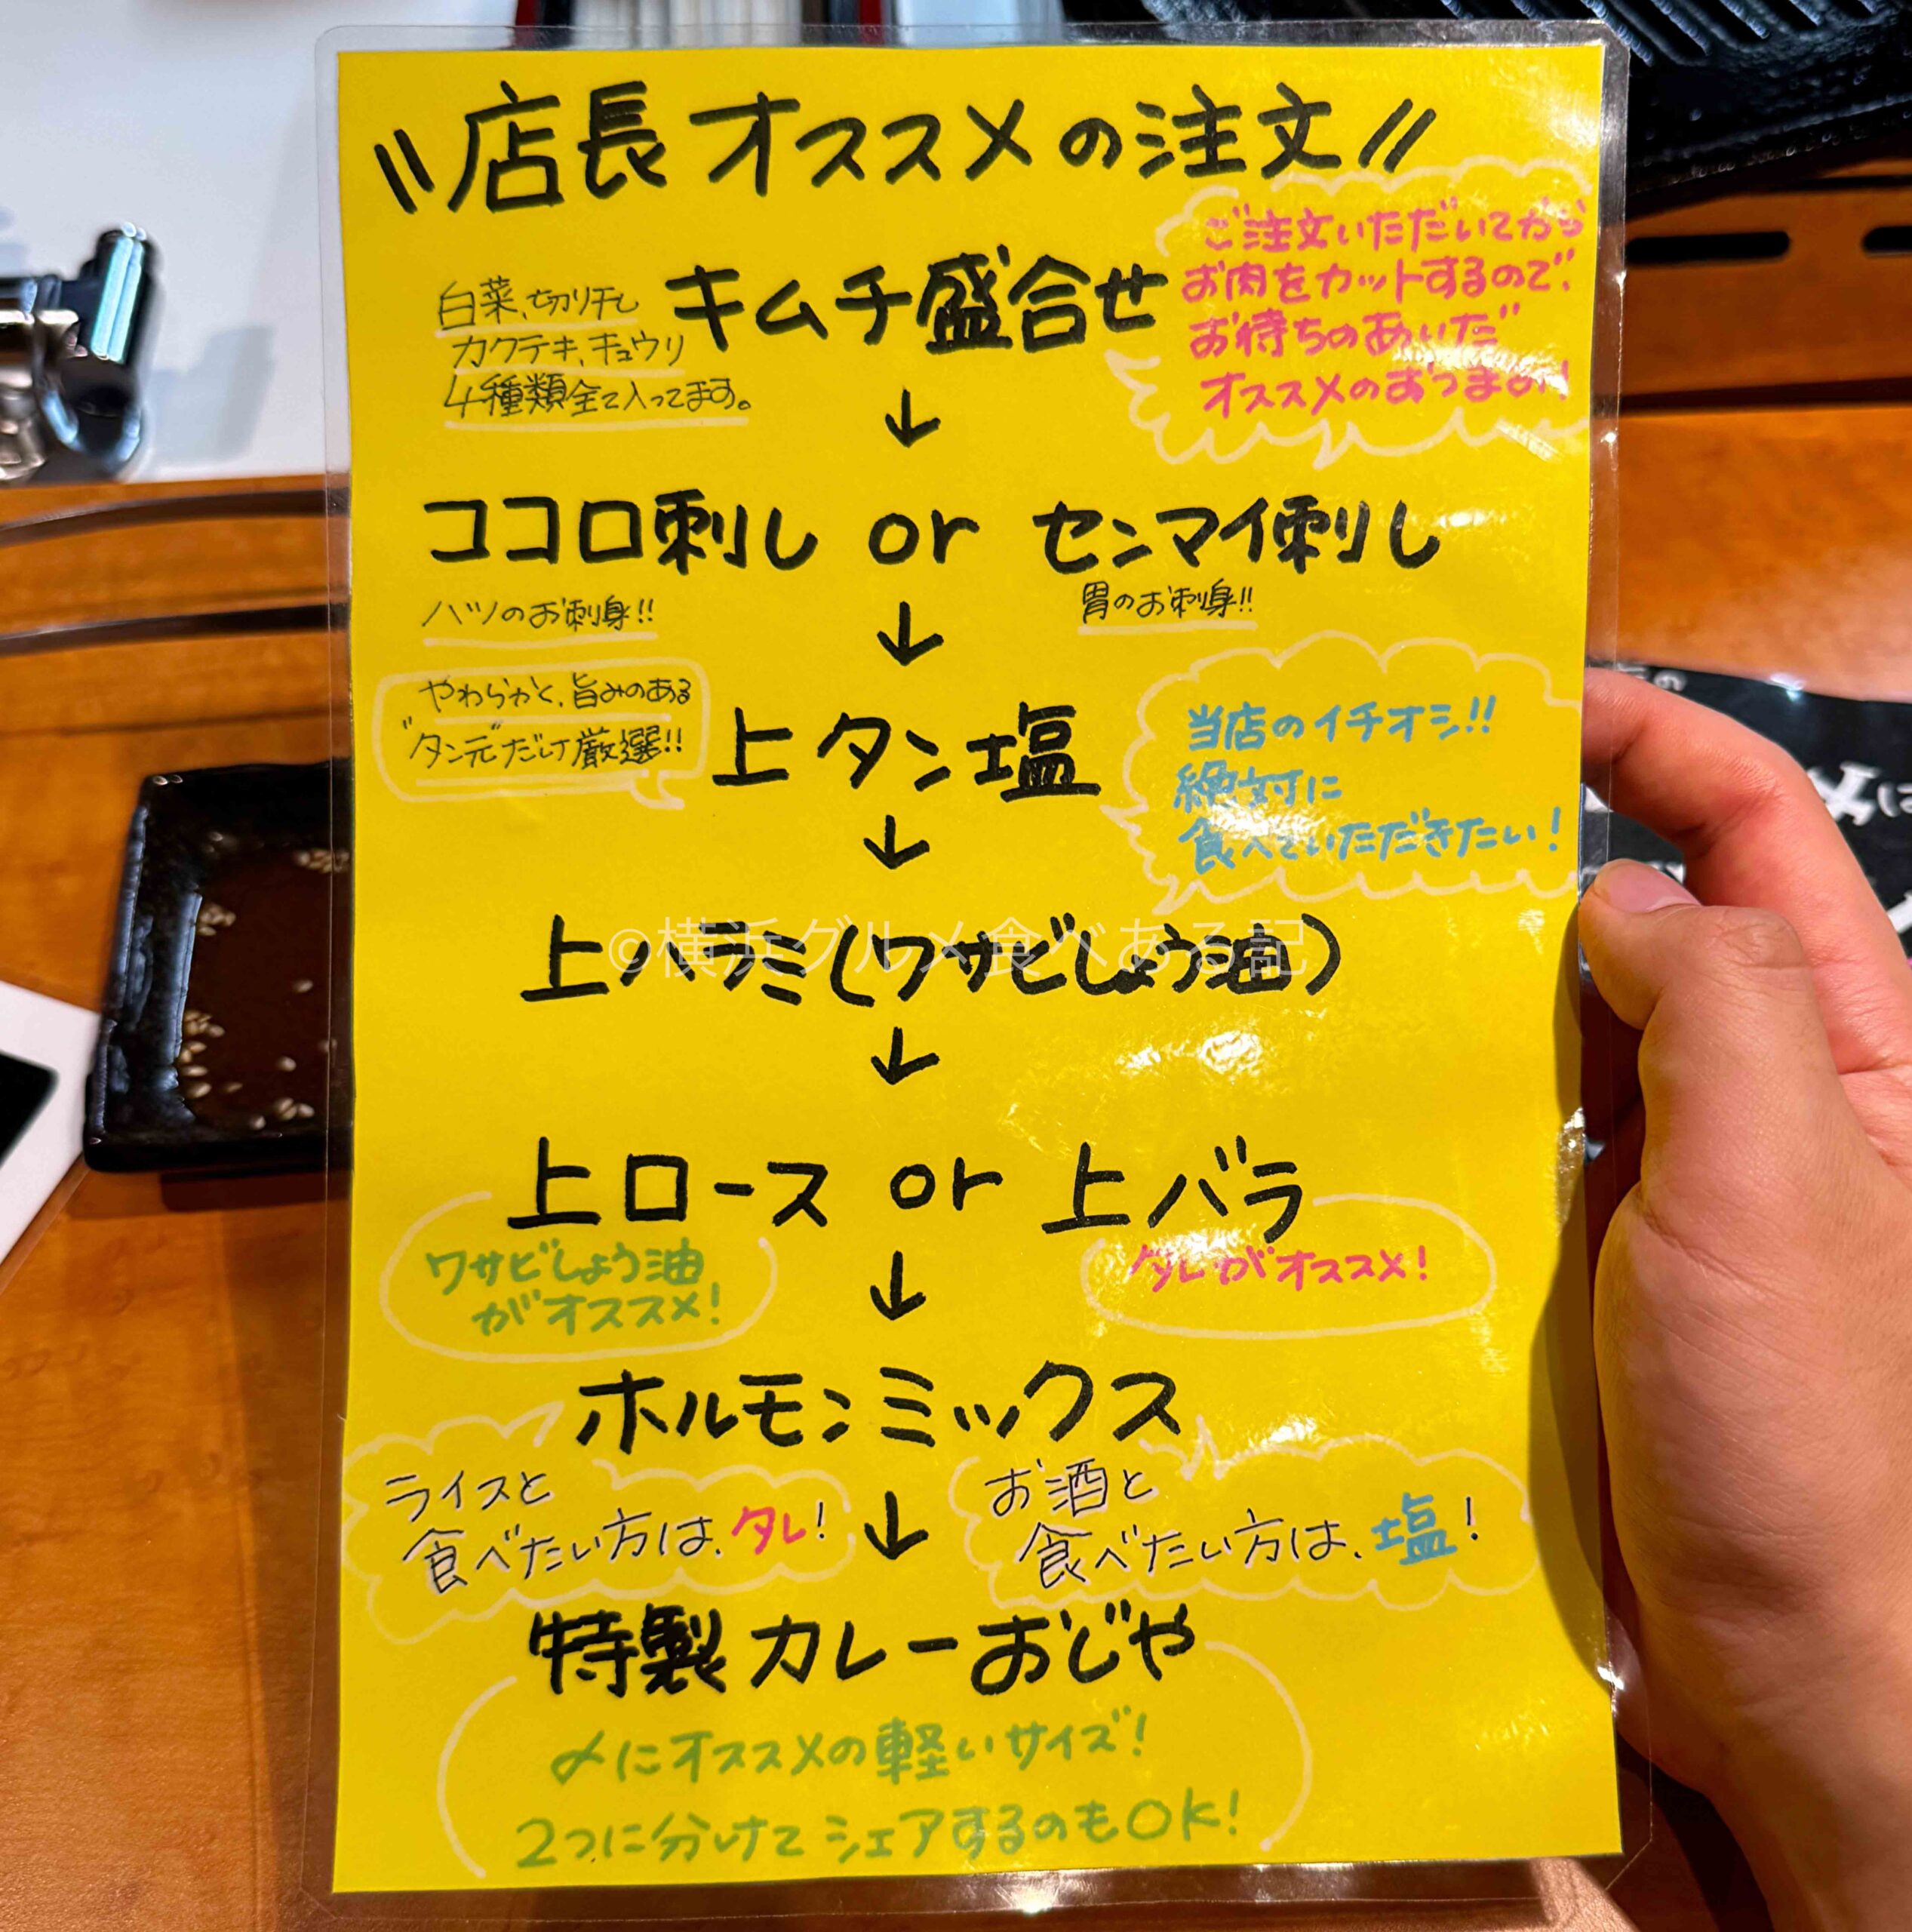 〝店長オススメの注文〃
ご注文いただいてから
お肉をカットするので、
お待ちのあいだ
オススメのおつまみ!
キムチ盛合せ
白菜、切り干し
カクテキ、キュウリ
4種類全て入ってます。
↓
ココロ刺し or センマイ刺し
ハツのお刺身!!
胃のお刺身!!
↓
やわらかく、旨みのある
"タン元"だけ厳選!!
上タン塩
当店のイチオシ!!
絶対に
食べていただきたい!
↓
上ハラミ(ワサビしょう油)
©横浜グルメ食べある記
↓
上ロース or 上バラ
ワサビしょう油
がオススメ!
タレがオススメ!
↓
ホルモンミックス
ライスと
食べたい方は、タレ!
お酒と
食べたい方は、塩!
↓
特製カレーおじや
〆にオススメの軽いサイズ!
2つに分けてシェアするのもOK!